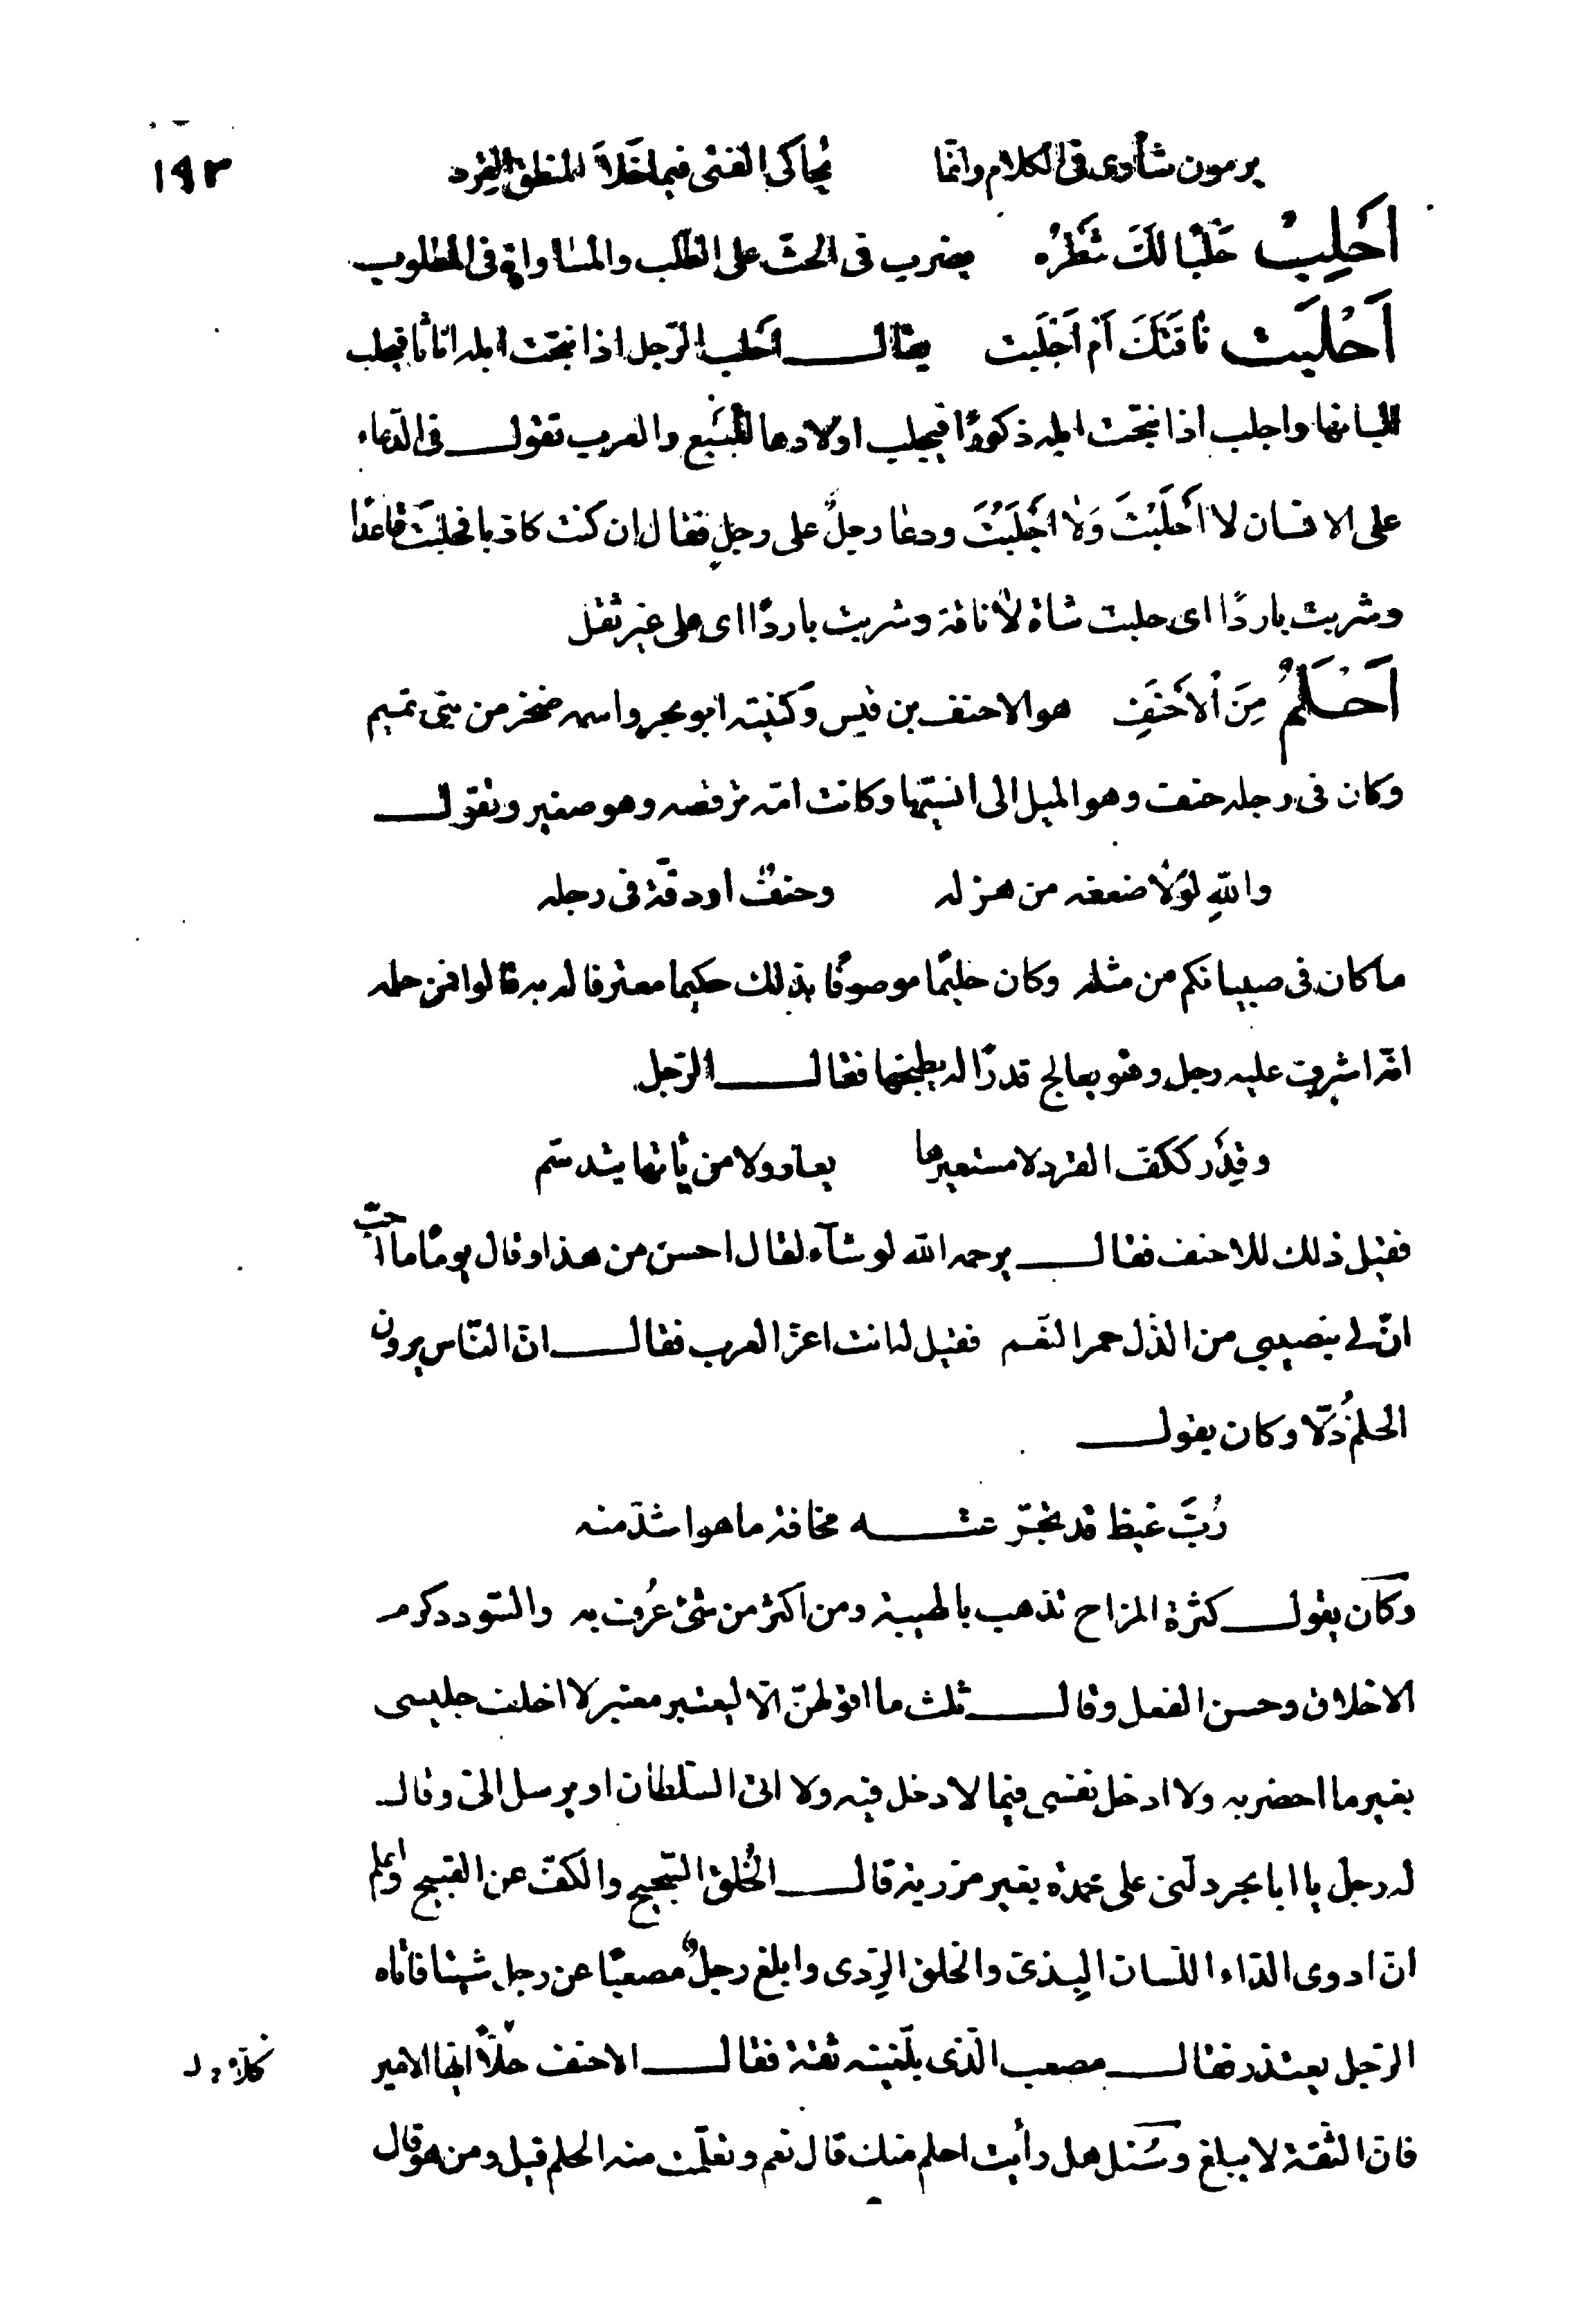 ١٩٣
يرومون شأوى فى الكلام وانما يحاكى الفتى فيما خلا المنطق القرد
اَحْلِبْ حَلَبًا لَكَ شَطْرُه يضرب فى الحثّ على الطّلب والمساواة فى المطلوب
اَحْلَبْتَ نَاقَتَكَ اَمْ اَجْلَبْتَ يقال احلب الرّجل اذا نتجت ابله اناثا فيحلب
البانها واجلب اذا نتجت ابله ذكورًا فيجلب اولادها للبيع والعرب تقول فى الدّعاء
على الانسان لا اَحْلَبْتَ وَلا اَجْلَبْتَ ودعا رجلٌ على رجل فقال ان كنت كاذبا فحلبتَ قاعدًا
وشربت باردًا اى حلبت شاة لا ناقة وشربت باردًا اى على غير ثقل
اَحْلَمُ مِنَ الْاَحْنَفِ هو الاحنف بن قيس وكنيته ابو بحر واسمه صخر من بنى تميم
وكان فى رجله حنف وهو الميل الى انسيّها وكانت امّه ترقصه وهو صغير وتقول
واللهِ لولا ضعفه من هزله وحنفٌ او دقّة فى رجله
ما كان فى صبيانكم من مثله وكان حليمًا موصوفًا بذلك حكيما معترفا له به قالوا فمن حلمه
انّه اشرف عليه رجل وهو يعالج قدرًا له يطبخها فقال الرّجل
وقِدْر ككفّ القرد لا مستعيرها يعار ولا من يأتها يتدسّم
فقيل ذلك للاحنف فقال يرحمه الله لو شآء لقال احسن من هذا وقال يومًا ما احبّ
انّ لى بنصيبى من الذّل حمر النّعم فقيل له انت اعزّ العرب فقال انّ النّاس يرون
الحلم ذُلّا وكان يقول
رُبَّ غيظ قد تجرّعته مخافة ما هو اشدّ منه
وكان يقول كثرة المزاح تذهب بالهيبة ومن اكثر من شئ عُرف به والسّودد كرم
الاخلاق وحسن الفعل وقال ثلث ما اقولهنّ الّا ليعتبر معتبر لا اخلف جليسى
بغير ما احضر به ولا ادخل نفسى فيما لا دخل فيه ولا اتى السّلطان او يرسل الىّ وقال
له رجل يا ابا بحر دلّنى على محمدة بغير مزرية قال الخُلق السّجيح والكفّ عن القبيح واعلم
انّ ادوى الدّاء اللّسان البذىّ والخلق الرّدى وابلغ رجلٌ مصعبًا عن رجل شيئا فاتاه
الرّجل يعتذر فقال مصعب الّذى بلّغنيه ثقة فقال الاحنف حلاّ ايّها الامير
فانّ الثّقة لا يبلغ وسُئل هل رأيت احلم منك قال نعم وتعلّمت منه الحلم قيل ومن هو قال